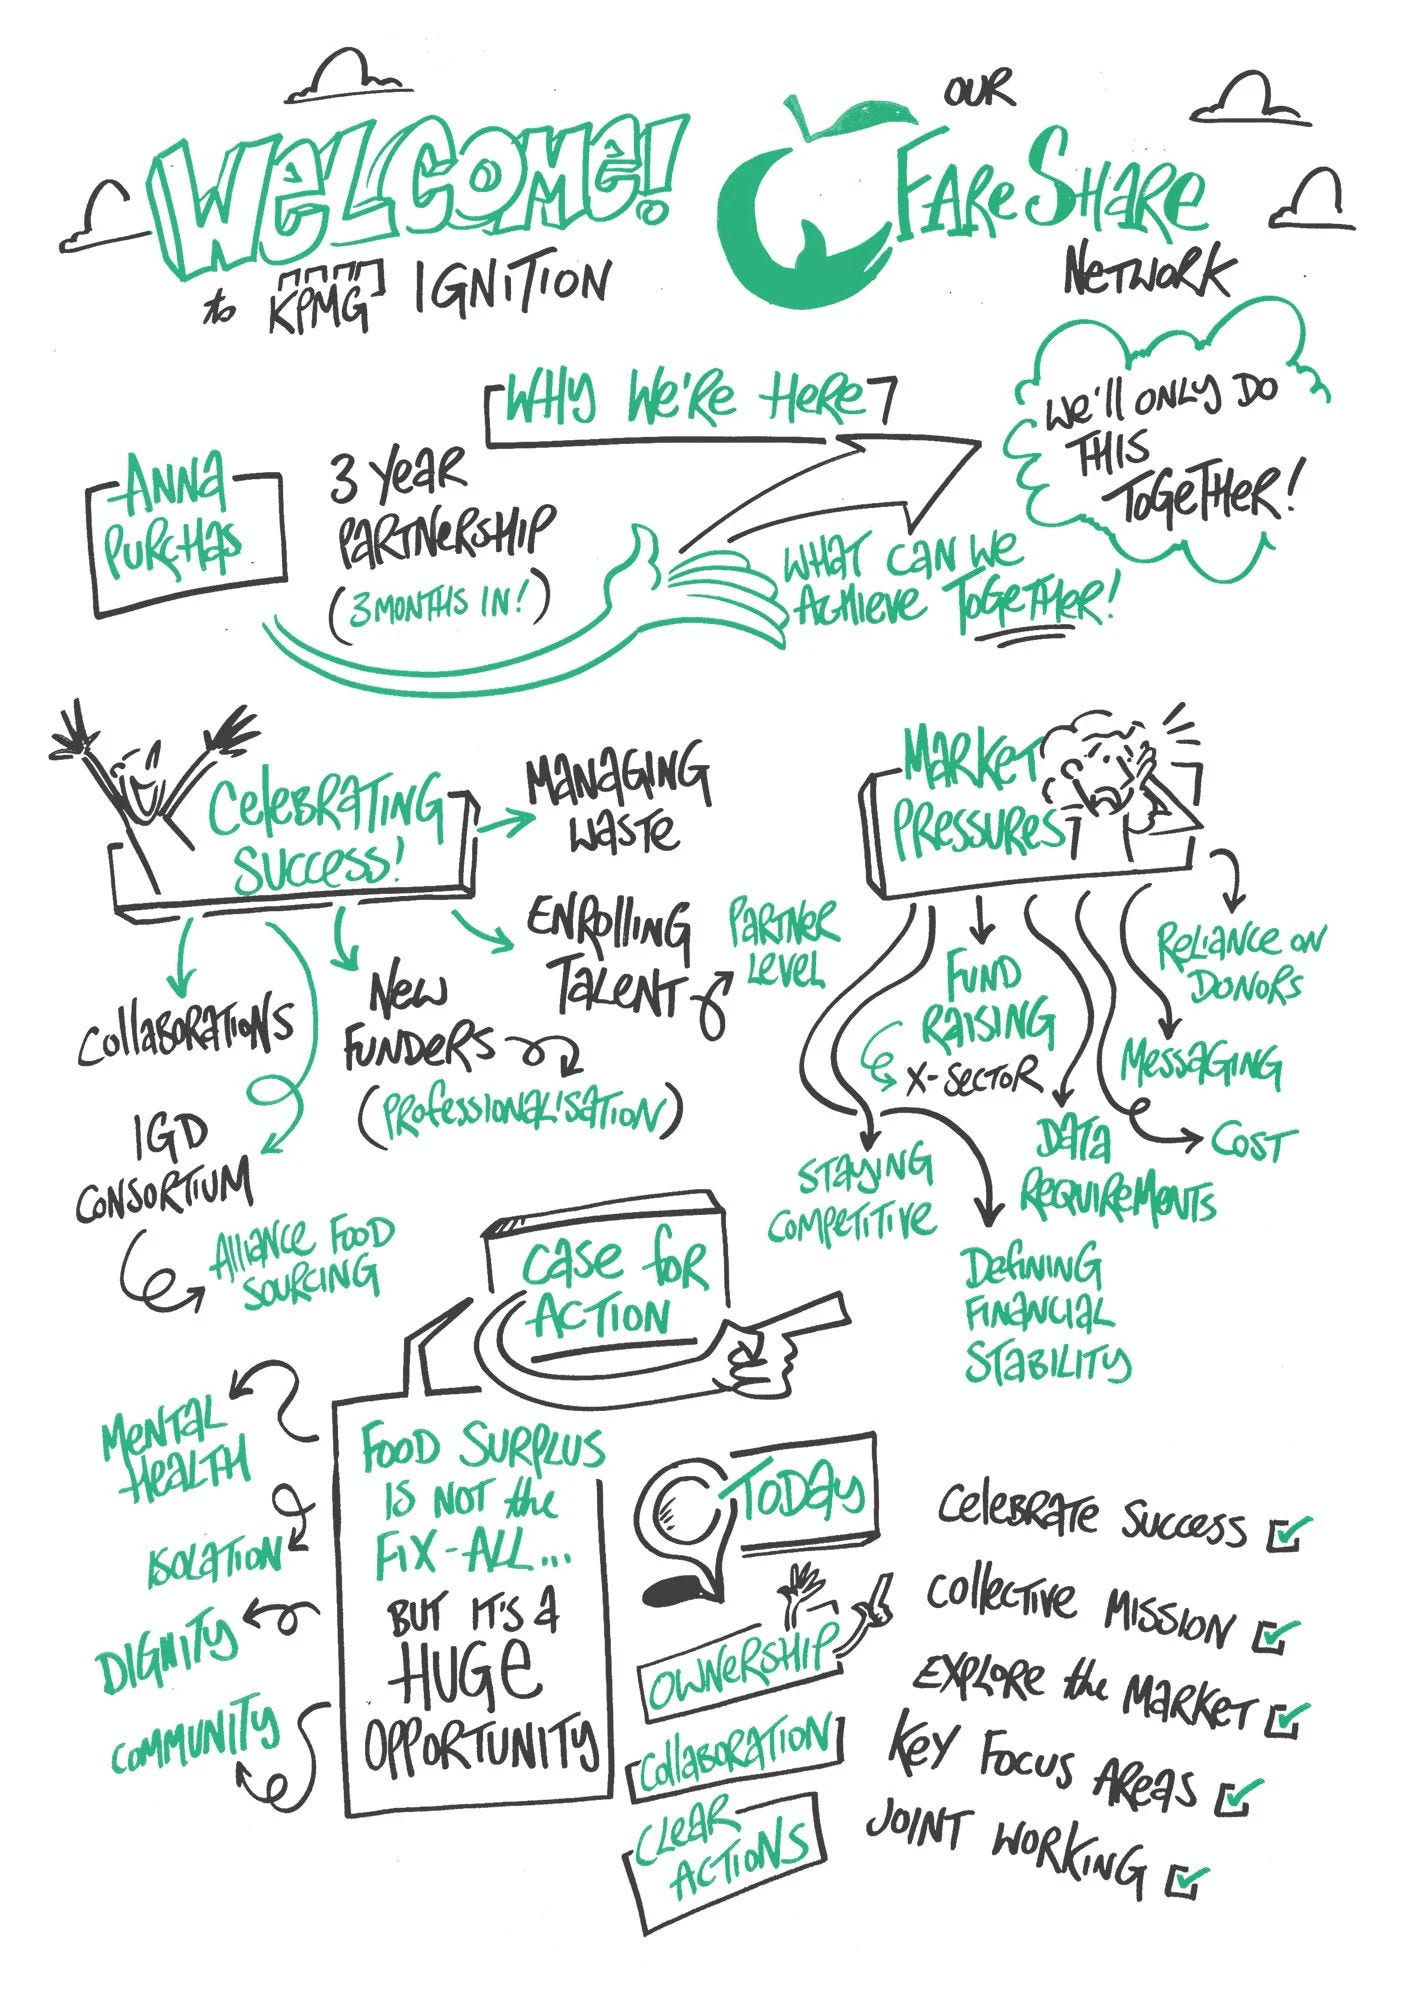 WELCOME!
to KPMG IGNITION
OUR
FARESHARE
NETWORK
WHY WE'RE HERE
WE'LL ONLY DO
THIS
TOGETHER!
ANNA
PURCHAS
3 YEAR
PARTNERSHIP
(3 MONTHS IN!)
WHAT CAN WE
ACHIEVE TOGETHER!
CELEBRATING
SUCCESS!
MANAGING
WASTE
ENROLLING
TALENT
PARTNER
LEVEL
NEW
FUNDERS
(PROFESSIONALISATION)
COLLABORATIONS
IGD
CONSORTIUM
ALLIANCE FOOD
SOURCING
MARKET
PRESSURES
RELIANCE ON
DONORS
MESSAGING
COST
DATA
REQUIREMENTS
FUND
RAISING
X-SECTOR
STAYING
COMPETITIVE
DEFINING
FINANCIAL
STABILITY
CASE for
ACTION
FOOD SURPLUS
IS NOT the
FIX-ALL...
BUT IT'S A
HUGE
OPPORTUNITY
MENTAL
HEALTH
ISOLATION
DIGNITY
COMMUNITY
TODAY
OWNERSHIP
COLLABORATION
CLEAR
ACTIONS
CELEBRATE SUCCESS
COLLECTIVE MISSION
EXPLORE the MARKET
KEY FOCUS AREAS
JOINT WORKING